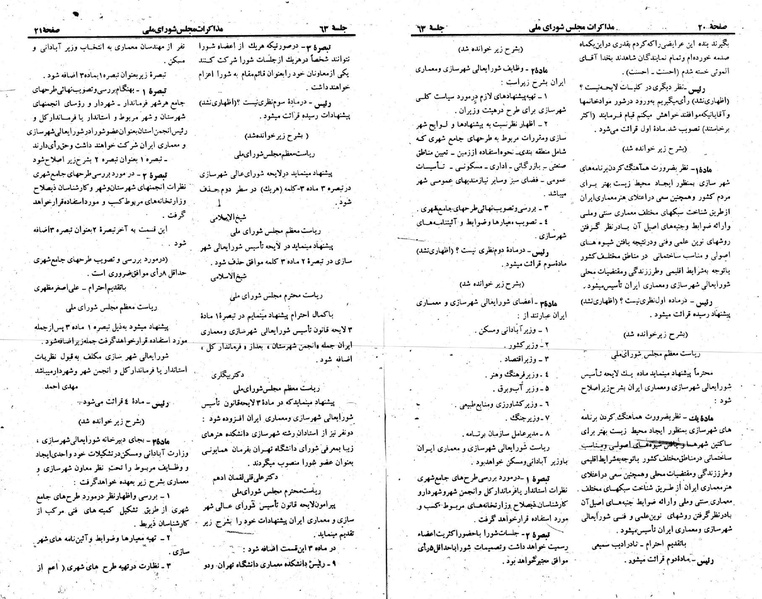 صفحهٔ ۲۰
مذاکرات مجلس شورای ملی
جلسهٔ ۶۳
بگیرند بنده این عرایض راکه کردم بقدری در این یکماه
صدمه خورده‌ام وتمام نمایندگان شاهدند بخدا آقای
الموتی خسته شدم (احسنت ـ احسنت).
رئیس ـ نظر دیگری در کلیات لایحه نیست؟
(اظهاری نشد) رأی میگیریم به‌ورود در شور موادخانمها
و آقایانیکه موافقند خواهش میکنم قیام فرمایند (اکثر
برخاستند) تصویب شد. مادهٔ اول قرائت میشود.
(بشرح زیر خوانده شد)
مادهٔ۱ ـ نظر بضرورت هماهنگ کردن برنامه‌های
شهر سازی بمنظور ایجاد محیط زیست بهتر برای
مردم کشور و همچنین سعی دراعتلای هنرمعماری ایران
ازطریق شناخت سبکهای مختلف معماری سنتی وملی و
ارائه ضوابط وجنبه‌های اصیل آن با در نظر گرفتن
روشهای نوین علمی وفنی ودرنتیجه یافتن شیوه های
اصولی و مناسب ساختمانی در مناطق مختلف کشور
باتوجه به‌شرایط اقلیمی وطرز زندگی ومقتضیات محلی
شورایعالی شهرسازی ومعماری ایران تأسیس میشود.
رئیس ـ در ماده اول نظری نیست؟ (اظهاری نشد)
پیشنهاد رسیده قرائت میشود.
(بشرح زیر خوانده شد)
ریاست معظم مجلس شورای ملی
محترماً پیشنهاد مینماید ماده یک لایحه تأسیس
شورایعالی شهرسازی ومعماری ایران بشرح زیر اصلاح
شود :
مادهٔ یک ـ نظر بضرورت هماهنگ کردن برنامه
های شهرسازی بمنظور ایجاد محیط زیست بهتر برای
ساکنین شهرها و یافتن شیوه‌های اصولی ومناسب
ساختمانی درمناطق مختلف کشور باتوجه به‌شرایط اقلیمی
وطرز زندگی ومقتضیات محلی وهمچنین سعی در اعتلای
هنر معماری ایران از طریق شناخت سبکهای مختلف
معماری سنتی وملی و ارائه ضوابط جنبه‌های اصیل آن
بادرنظر گرفتن روشهای نوین علمی و فنی شورایعالی
شهرسازی ومعماری ایران تأسیس میشود.
باتقدیم احترام ـ نادر ادیب سمیعی
رئیس ـ مادهٔ دوم قرائت میشود.
(بشرح زیر خوانده شد)
مادهٔ۲ ـ وظایف شورایعالی شهرسازی ومعماری
ایران بشرح زیر است :
۱ ـ تهیه پیشنهادهای لازم درمورد سیاست کلی
شهرسازی برای طرح در هیئت وزیران.
۲ ـ اظهار نظر نسبت به پیشنهادها و لوایح شهر
سازی ومقررات مربوط به طرحهای جامع شهری که
شامل منطقه بندی ـ نحوه استفاده اززمین ـ تعیین مناطق
صنعتی ـ بازرگانی ـ اداری ـ مسکونی ـ تأسیسات
عمومی ـ فضای سبز وسایر نیازمندیهای عمومی شهر
میباشد.
۳ ـ بررسی وتصویب نهائی طرحهای جامع شهری.
۴ ـ تصویب معیارها و ضوابط و آئیننامه های
شهرسازی.
رئیس ـ در ماده دوم نظری نیست؟ (اظهاری نشد)
مادهٔ سوم قرائت میشود.
(بشرح زیر خوانده شد)
مادهٔ۳ ـ اعضای شورایعالی شهرسازی و معماری
ایران عبارتند از :
۱ ـ وزیرآبادانی ومسکن.
۲ ـ وزیرکشور.
۳ ـ وزیراقتصاد.
۴ ـ وزیرفرهنگ وهنر
۵ ـ وزیر آب‌وبرق.
۶ ـ وزیرکشاورزی ومنابع طبیعی.
۷ ـ وزیرجنگ.
۸ ـ مدیرعامل سازمان برنامه.
ریاست شورایعالی شهرسازی و معماری ایران
باوزیر آبادانی ومسکن خواهدبود.
تبصره ۱ ـ درمورد بررسی طرحهای جامع شهری
نظرات استاندار یافرماندار کل وانجمن شهروشهردارو
کارشناسان ذیصلاح وزارتخانه‌های مربوط کسب و
مورد استفاده قرارخواهد گرفت.
تبصره ۲ ـ جلسات شورا باحضور اکثریت اعضاء
رسمیت خواهد داشت وتصمیمات شورا باحداقل ۵ رأی
موافق معتبرخواهد بود.
جلسهٔ ۶۳
مذاکرات مجلس شورای ملی
صفحهٔ ۲۱
تبصرهٔ ۳ ـ درصورتیکه هریک از اعضاء شورا
نتوانند شخصاً درهریک ازجلسات شورا شرکت کنند
یکی ازمعاونان خود رابعنوان قائم‌مقام به شورا اعزام
خواهند داشت.
رئیس ـ درمادهٔ سوم نظری نیست؟ (اظهاری نشد)
پیشنهادات رسیده قرائت میشود.
(بشرح زیر خوانده شد)
ریاست معظم مجلس شورای ملی
پیشنهاد مینماید در لایحه شورای عالی شهرسازی
درتبصره ۳ ماده ۳ـ کلمه (هریک) در سطر دوم حذف
شود.
شیخ‌الاسلامی
ریاست معظم مجلس شورای ملی
پیشنهاد مینماید در لایحه تأسیس شورایعالی شهر
سازی در تبصرهٔ ۲ ماده ۳ کلمه موافق حذف شود.
شیخ‌الاسلامی
ریاست محترم مجلس شورای ملی
باکمال احترام پیشنهاد مینمایم در تبصرهٔ۱ مادهٔ
۳ لایحه قانون تأسیس شورایعالی شهرسازی ومعماری
ایران جمله «انجمن شهرستان» بعداز «فرماندار کل»
اضافه شود.
دکتربیگلری
ریاست معظم مجلس شورای ملی
پیشنهاد مینماید که در مادهٔ ۳ لایحه قانون تأسیس
شورایعالی شهرسازی ومعماری ایران افزوده شود :
دونفر نیز از استادان رشته شهرسازی دانشکده هنرهای
زیبا بمعرفی شورای دانشگاه تهران بفرمان همایونی
بعنوان عضو شورا منصوب میگردند.
دکترعلی‌قلی لقمان ادهم
ریاست محترم مجلس شورای ملی
پیرامون لایحه قانون تأسیس شورای عالی شهر
سازی و معماری ایران پیشنهادات خود را بشرح زیر
تقدیم مینماید.
در ماده ۳ این قسمت اضافه شود :
۹ ـ رئیس دانشکده معماری دانشگاه تهران ودو
نفر از مهندسان معماری به انتخاب وزیر آبادانی و
مسکن.
تبصره زیر بعنوان تبصره ۱ بماده ۳ اضافه شود.
تبصره ۱ ـ بهنگام بررسی وتصویب نهائی طرحهای
جامع هر شهر فرماندار ـ شهردار و رؤسای انجمنهای
شهرستان و شهر مربوط و استاندار یا فرماندار کل و
رئیس انجمن استان بعنوان عضو شورا در شورایعالی شهرسازی
و معماری ایران شرکت خواهند داشت وحق رأی دارند
ـ تبصره ۱ بعنوان تبصره ۲ بشرح زیر اصلاح شود
تبصره ۲ ـ در مورد بررسی طرحهای جامع شهری
نظرات انجمنهای شهرستان وشهر وکارشناسان ذیصلاح
وزارتخانه‌های مربوط کسب و مورد استفاده قرارخواهد
گرفت.
این قسمت به آخر تبصرهٔ ۲ بعنوان تبصره ۳ اضافه
شود.
(درمورد بررسی و تصویب طرحهای جامع شهری
حداقل ۸ رأی موافق ضروری است.
باتقدیم احترام ـ علی اصغر مظهری
ریاست معظم مجلس شورای ملی
پیشنهاد میشود بذیل تبصره ۱ ماده ۳ پس از جمله
مورد استفاده قرار خواهد گرفت جمله زیر اضافه شود.
شورایعالی شهر سازی مکلف به قبول نظریات
استاندار یا فرماندار کل و انجمن شهر وشهردار میباشد
مهدی احمد
رئیس ـ ماده ۴ قرائت میشود.
(بشرح زیر خوانده شد)
مادهٔ۴ ـ بجای دبیرخانه شورایعالی شهرسازی،
وزارت آبادانی ومسکن درتشکیلات خود واحدی ایجاد
و وظایف مربوط را تحت نظر معاون شهرسازی و
معماری بشرح زیر بعهده خواهد گرفت :
۱ ـ بررسی واظهارنظر درمورد طرح‌های جامع
شهری از طریق تشکیل کمیته های فنی مرکب از
کارشناسان ذیربط.
۲ ـ تهیه معیارها وضوابط وآئین‌نامه های شهر
سازی.
۳ ـ نظارت در تهیه طرح های شهری (اعم از